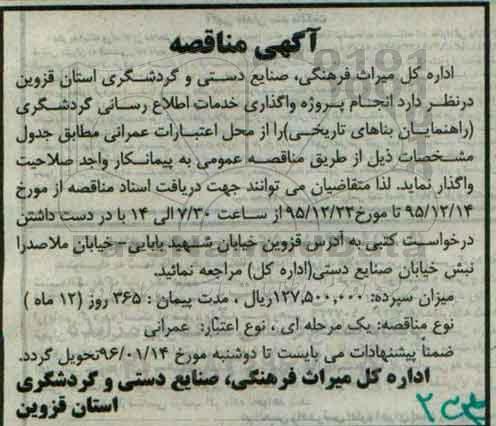 آگهی مناقصه
اداره کل میراث فرهنگی، صنایع دستی و گردشگری استان قزوین
درنظر دارد انجام پروژه واگذاری خدمات اطلاع رسانی گردشگری
(راهنمایان بناهای تاریخی)را از محل اعتبارات عمرانی مطابق جدول
مشخصات ذیل از طریق مناقصه عمومی به پیمانکار واجد صلاحیت
واگذار نماید. لذا متقاضیان می توانند جهت دریافت اسناد مناقصه از مورخ
۹۵/۱۲/۱۴ تا مورخ۹۵/۱۲/۲۳از ساعت ۷/۳۰ الی ۱۴ با در دست داشتن
درخواست کتبی به آدرس قزوین خیابان شهید بابایی- خیابان ملاصدرا
نبش خیابان صنایع دستی(اداره کل) مراجعه نمائید.
میزان سپرده: ۱۲۷,۵۰۰,۰۰۰ریال ، مدت پیمان : ۳۶۵ روز (۱۲ ماه )
نوع مناقصه: یک مرحله ای ، نوع اعتبار: عمرانی
ضمناً پیشنهادات می بایست تا دوشنبه مورخ ۹۶/۰۱/۱۴تحویل گردد.
اداره کل میراث فرهنگی، صنایع دستی و گردشگری
استان قزوین